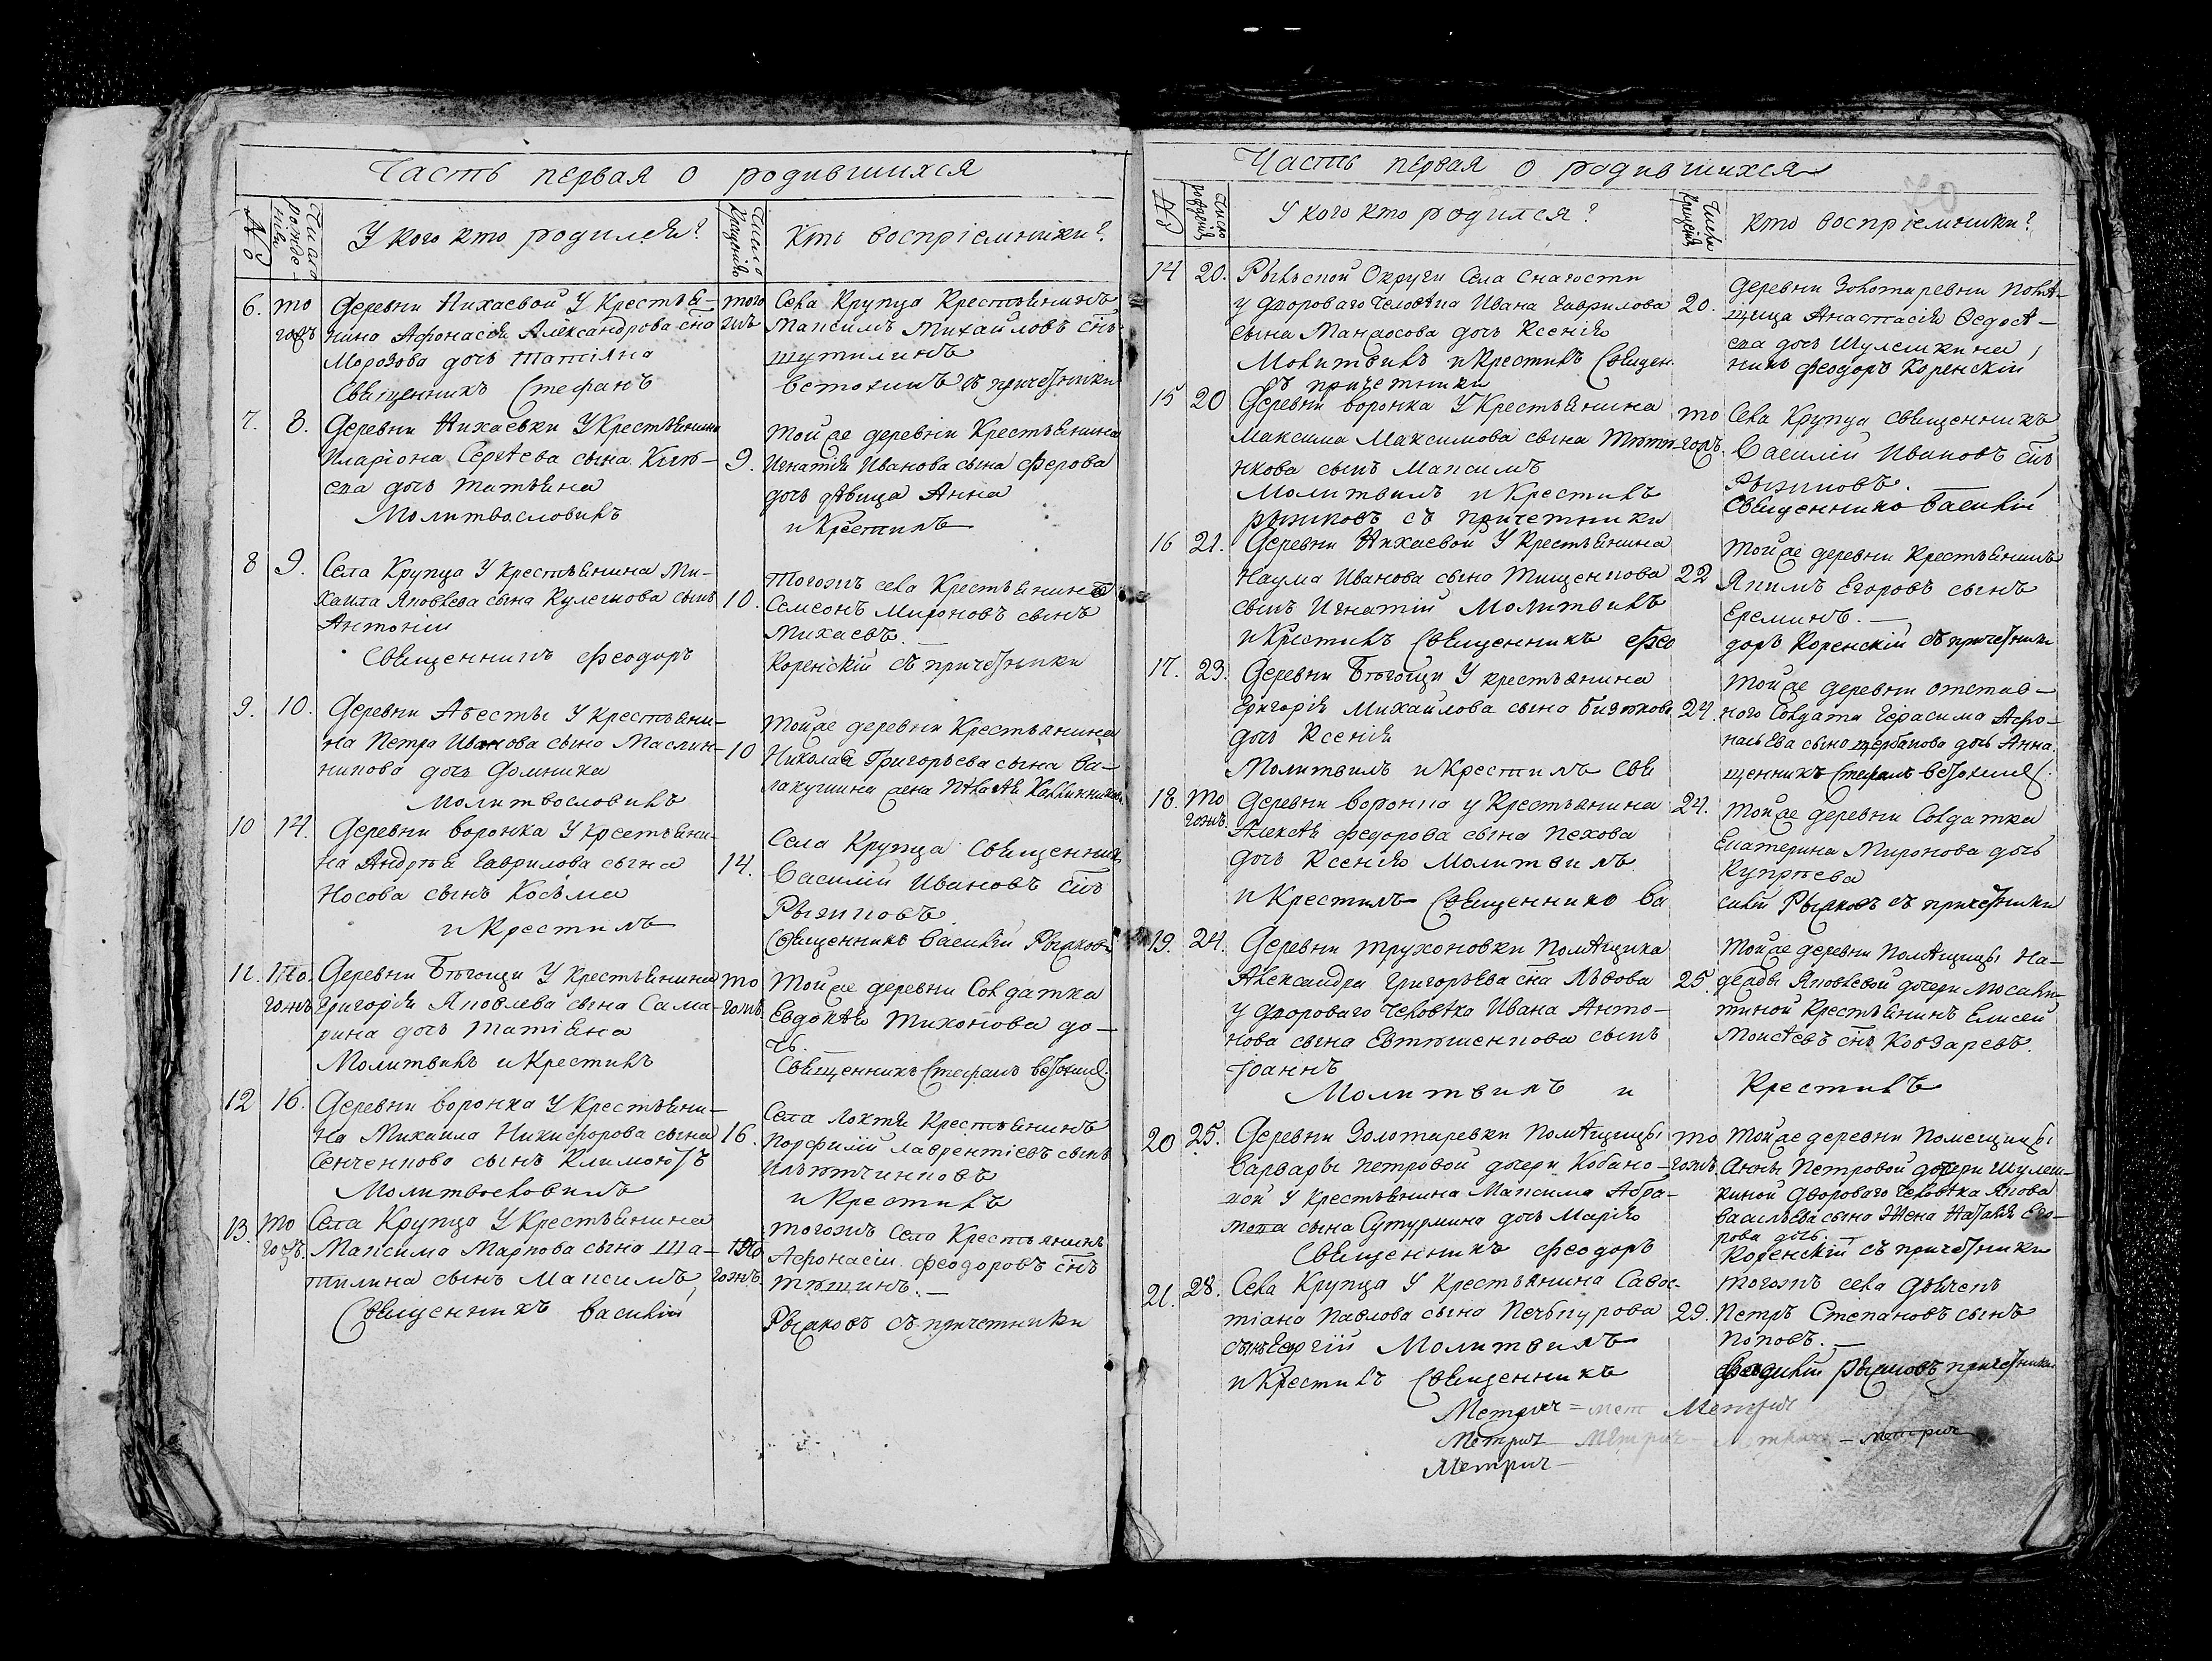 Часть первая о родившихся
№
Число рожде-
нія
У кого кто родился?
Число
Крещенія
Кто воспріемники?
6.
то
гожъ
Деревни Нихаевой У Крестья-
нина Афонасія Александрова сна
Морозова дочь татіяна
Священникъ Стефанъ
того
жъ
Села Крупца Крестьянинъ
Максимъ Михайловъ снъ
шутилинъ
Ветохинъ съ причетники
7.
8.
Деревни Нихаевки У Крестьянина
Иларіона Сергѣева сына
дочь татьяна
Молитвословилъ
9.
той же деревни Крестьянина
Игнатія Иванова сына Ферова
дочь дѣвица Анна
и Крестилъ
8
9.
Села Крупца У Крестьянина Ми-
хаила Яковлева сына Кулешова сынъ
Антоній
Священникъ Феодоръ
10.
Тогожъ села Крестьянинъ
Самсонъ Мироновъ сынъ
Михаевъ.
Коренскій съ причетники
9.
10.
Деревни Абесты У крестьяни-
на Петра Иванова сына Маслин-
никова дочь Домника
Молитвословилъ
10
Той же деревни Крестьянина
Николая Григорьева сына Ба-
лакушина жена
10
14.
Деревни воронка У Крестьяни-
на Андрѣя Гаврилова сына
Носова сынъ Косьма
и Крестилъ
14.
Села Крупца Священникъ
Василій Ивановъ снъ
Рыжиковъ
Священникъ Василій Рыжковъ
11.
То
гожъ
Деревни Бѣгощи У Крестьянина
Григорія Яковлева сына Сама-
рина дочь татіяна
Молитвилъ и Крестилъ
то
гожъ
Той же деревни Солдатка
Евдокѣя Тихонова до-
чь.
Священникъ Стефанъ Ветохинъ
12
16.
Деревни воронка У Крестьяни-
на Михаила Никифорова сына
Сенченкова сынъ
Молитвословилъ
16.
Села Локтя Крестьянинъ
Порфилій Лаврентіевъ сынъ

и Крестилъ
13.
то
гожъ
Села Крупца У Крестьянина
Максима Маркова сына Ша-
тилина сынъ Максимъ,
Священникъ Василій
то
гожъ
тогожъ Села Крестьянинъ
Афонасій Феодоровъ снъ
Тѣшинъ.
Рыжковъ съ причетники
Часть первая о родившихся
№
Число
рожденія
У кого кто родился?
Числа
Крещенія
кто воспріемники?
14
20.
Рыльской Округи Села Снагости
у двороваго человѣка Ивана Гаврилова
сына Манаосова дочь Ксенія
Молитвилъ и Крестилъ Священ
съ причетники
20.
Деревни Золотаревки помѣ-
щица Анастасія Ѳедосѣ-
ева дочь Шулешкина,
никъ Феодоръ Коренскій
15
20
Деревни воронка У Крестьянина
Максима Максимова сына
нкова сынъ Максимъ
Молитвилъ и Крестилъ
рыжковъ съ причетники
то
гожъ
Села Крупца священникъ
Василій Ивановъ снъ
Рыжиковъ.
Священникъ Василій
16
21.
Деревни Нихаевой У Крестьянина
Наума Иванова сына Тищенкова
сынъ Игнатій Молитвилъ
и Крестилъ Священникъ Фео
22
Той же деревни Крестьянинъ
Якимъ Егоровъ сынъ
Ереминъ.
доръ Коренскій съ причетники
17.
23.
Деревни Бѣгощи У крестьянина
Григорія Михайлова сына
дочь Ксенія
Молитвилъ и Крестилъ Свя
24.
Той же деревни отстав-
ного Солдата Герасима Афо-
насьева сына щербакова дочь Анна.
щенникъ Стефанъ Ветохинъ.
18.
то
гожъ.
Деревни воронка у Крестьянина
Алексѣя Федорова сына Пехова
дочь Ксенія Молитвилъ
и Крестилъ Священникъ Ва
24.
Той же деревни Солдатка
Екатерина Миронова дочь
Купрѣева
силій Рыжковъ съ причетники
19.
24.
Деревни Трухоновки Помѣщика
Александра Григорьева сна Львова
у двороваго человѣка Ивана Анто-
нова сына Евтѣшенкова сынъ
Іоаннъ
Молитвилъ и
25
Той же деревни Помѣщицы На-
дежды Яковлевой дочери Мосали-
тиной Крестьянинъ Елисей
Моисѣевъ снъ Кобзаревъ.
Крестилъ
20
25.
Деревни Золотаревки Помѣщицы
Варвары Петровой дочери Кобано-
кой У Крестьянина Максима Абра-
мова сына Сутурмина дочь Марія
Священникъ Феодоръ
то
гожъ
Той же деревни Помещицы
Анны Петровой дочери Шулеш-
киной двороваго человѣка Якова
Васильева сына Жена Наталія Его-
рова дочь.
Коренскій съ причетники
21.
28.
Села Крупца У Крестьянина Савос-
тіана Павлова сына Печкурова
сынъ Георгій Молитвилъ
и Крестилъ Священникъ
29.
тогожъ села Дьячекъ
Петръ Степановъ сынъ
Поповъ.
Рыжковъ причетники
Метрич = мет Метрич
Метрич Метрич - Метрич - метрич
Метрич